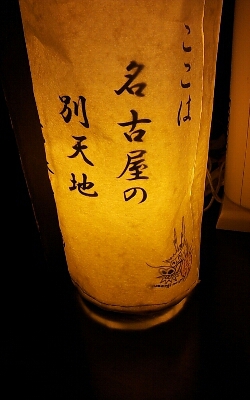 ここは
名古屋の
別天地